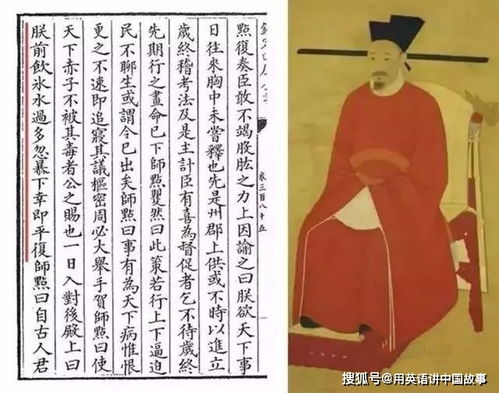 卷三百八十五
點復奏臣敢不竭股肱之力上因諭之曰朕欲天下事
日往來胸中未嘗釋也先是州郡上供或不時以進立
歲終稽考法及是主計臣有喜為督促者乞不待歲終
先期行之畫命已下師點矍然曰此策若行上下逼迫
民不聊生或謂今已出矣師點曰事有為天下病惟恨
更之不速即追寢其議樞密周必大舉手賀師點曰使
天下赤子不被其毒者公之賜也一日入對後殿上曰
朕前飲氷水過多忽暴下幸即平復師點曰自古人君
搜狐号@用英语讲中国故事